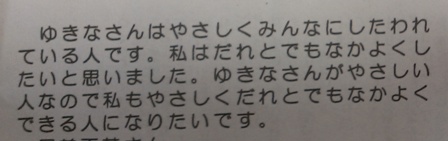 ゆきなさんはやさしくみんなにしたわれ
ている人です。私はだれとでもなかよくし
たいと思いました。ゆきなさんがやさしい
人なので私もやさしくだれとでもなかよく
できる人になりたいです。